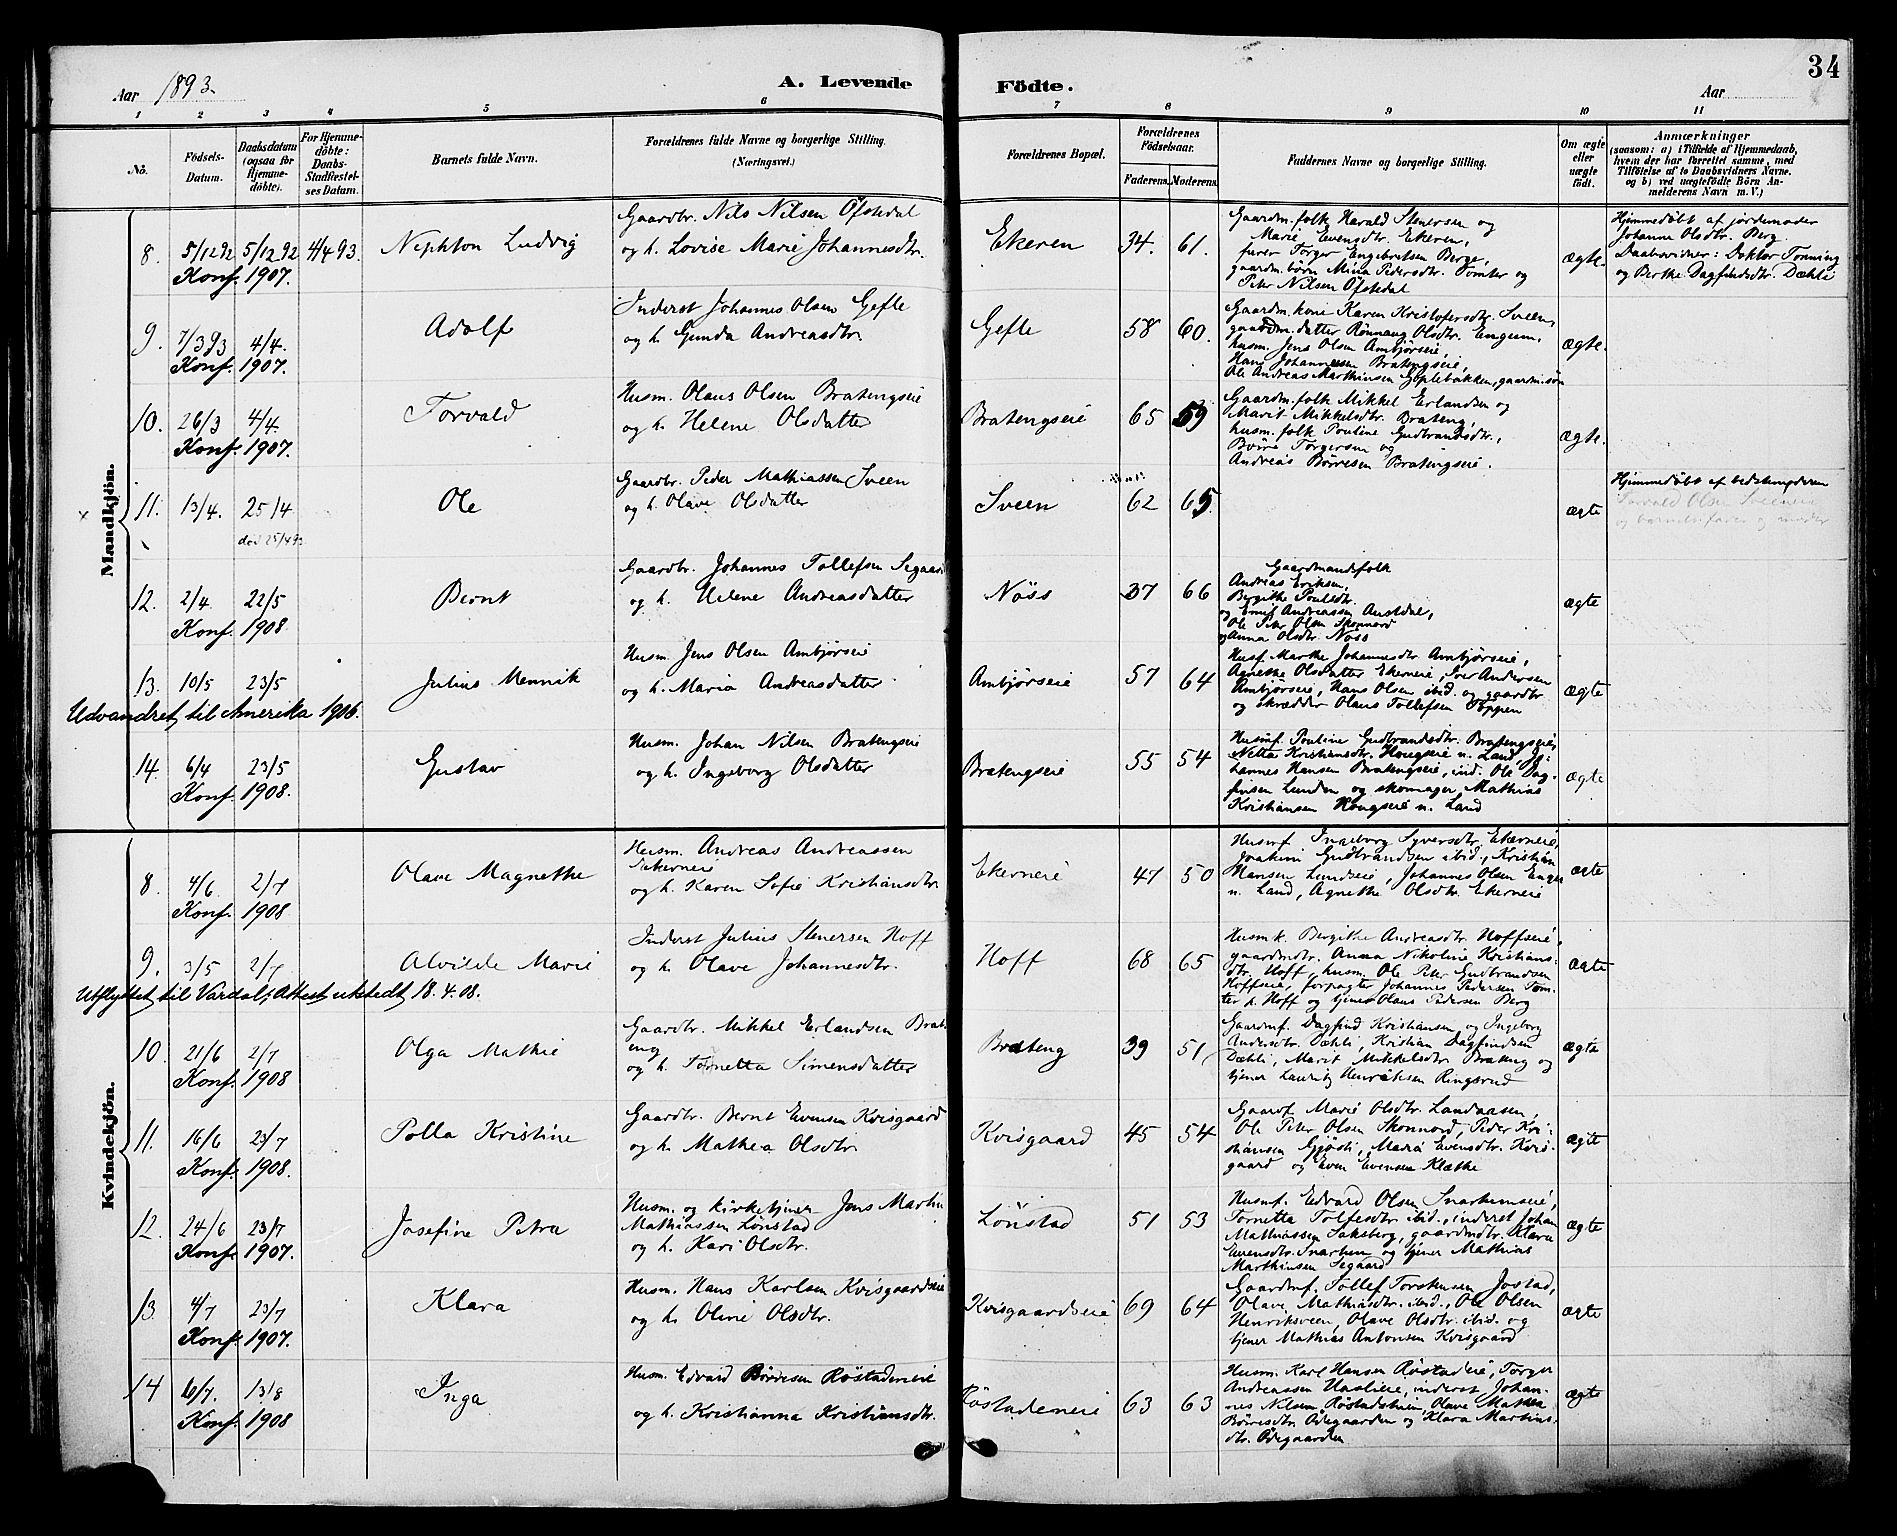 34
Aar 1893.
A. Levende Födte.
Aar
1 2 3 4 5 6 7 8 9 10 11
No.
Födsels-Datum.
Daabsdatum (ogsaa för Hjemme-döbte).
For Hjemme-döbte: Daabs-Stadfæstelses Datum.
Barnets fulde Navn.
Forældrenes fulde Navne og borgerlige Stilling. (Næringsvei.)
Forældrenes Bopæl.
Forældrenes Födselsaar.
Faderens. Moderens.
Faddernes Navne og borgerlige Stilling.
Om ægte eller uægte födt.
Anmærkninger
(saasom: a) i Tilfælde af Hjemmedaab,
hvem der har forrettet samme, med
Tilföielse af to Daabsvidners Navne.
og b) ved uægtefödte Börn An-
melderens Navn m. V.)
Mandkjön.
8. 5/12 92 5/12 92 4/4 93. Nephton Ludvig
Konf. 1907.
Gaardbr. Nils Nilsen Ofstedal
og h. Lovise Marie Johannesdtr.
Ekeren 34. 61.
Gaardm.folk Harald Stenersen og
Marie Evensdtr. Ekeren,
furer Torger Engebretsen Berge,
gaardm.børn Mina Pedersdtr. Tomter og
Peter Nilsen Ofstedal
ægte.
Hjemmedøbt af jordemoder
Johanne Olsdtr. Berg.
Daabsvidner: Doktor Tonning
og Berthe Dagfindsdtr. Dæhli
9. 7/3 93 4/4. Adolf
Konf. 1907.
Inderst Johannes Olsen Gefle
og h. Gunda Andreasdtr.
Gefle 58 60.
Gaardm.kone Karen Kristofersdtr. Sveen,
gaardm.datter Rønnaug Olsdtr. Engum,
husm. Jens Olsen Ambjørseie,
Hans Johannesen Bratengseie,
Ole Andreas Marthinsen Goplebakken, gaardm.søn
ægte.
10. 26/3 4/4. Torvald
Konf. 1907.
Husm. Olaus Olsen Bratengseie
og h. Helene Olsdatter
Bratengseie 65 59
Gaardm.folk Mikkel Erlandsen og
Marit Mikkelsdtr. Brateng,
husm.folk Pouline Gudbrandsdtr.,
Børre Torgersen og
Andreas Børresen Bratengseie.
ægte.
11. 13/4. 25/4 Ole
død 25/4 93
Gaardbr. Peder Mathiassen Sveen
og h. Olave Olsdatter
Sveen 62 65.
ægte
Hjemmedøbt af bedstemoderen
Torvald Olsen Sveeneie
og barnets fader og moder
12. 2/4. 22/5 Bernt
Konf. 1908.
Gaardbr. Johannes Tollefsen Segaard
og h. Helene Andreasdatter
Nöss 37 66
Gaardmandsfolk
Andreas Eriksen,
Bergithe Poulsdtr.
og Emil Andreassen Austdal,
Ole Peter Olsen Skonnord
og Anna Olsdtr. Nöss
ægte
13. 10/5 23/5 Julius Mennik
Udvandret til Amerika 1906.
Husm. Jens Olsen Ambjørseie
og h. Maria Andreasdatter
Ambjørseie 57 64
Husf. Marthe Johannesdtr. Ambjørseie,
Agnethe Olsdatter Ekerneie, Iver Andersen
Ambjørseie, Hans Olsen ibid. og gaardbr.
og skrædder Olaus Tollefsen Toppen
ægte
14. 6/4 23/5 Gustav
Konf. 1908.
Husm. Johan Nilsen Bratengseie
og h. Ingeborg Olsdatter
Bratengseie 55 54
Husmf. Pouline Gudbrandsdtr. Bratengseie,
Netta Kristiansdtr. Hougseie n. Land, Jo-
hannes Hansen Bratengseie, ind. Ole Dag-
finsen Lunden og skomager Mathias
Kristiansen Hougseie n. Land
ægte
Kvindekjön.
8. 4/6 2/7 Olave Magnethe
Konf. 1908
Husm. Andreas Andreassen
Ekerneie
og h. Karen Sofie Kristiansdtr.
Ekerneie 47 50
Husmf. Ingeborg Syversdtr. Ekerneie,
Joakim Gudbrandsen ibid., Kristian
Hansen Lundseie, Johannes Olsen Enger
n. Land, Agnethe Olsdtr. Ekerneie
ægte
9. 3/5 2/7 Alvilde Marie
Utflyttet til Vardal; Attest utstedt 18.4.08.
Inderst Julius Stenersen Hoff
og h. Olave Johannesdtr.
Hoff 68 65
Husmk. Bergithe Andreasdtr. Hoffseie,
gaardmdtr. Anna Nikoline Kristians-
dtr. Hoff, husm. Ole Peter Gudbrandsen
Hoffseie, forpagter Johannes Pedersen Tom-
ter p. Hoff og tjener Olaus Pedersen Berg
ægte
10. 21/6 2/7 Olga Mathie
Konf. 1908
Gaardbr. Mikkel Erlandsen Brat-
eng
og h. Tornetta Simensdatter
Brateng 39 51
Gaardmf. Dagfind Kristiansen og Ingeborg
Andersdtr. Dæhli, Kristian Dagfindsen
Dæhli, Marit Mikkelsdtr. Brateng og
tjener Lauritz Henriksen Ringsrud
ægte
11. 16/6 23/7 Polla Kristine
Konf. 1908.
Gaardbr. Bernt Evensen Kvisgaard
og h. Mathea Olsdtr.
Kvisgaard 45 54
Gaardf. Marie Olsdtr. Landaasen,
Ole Peter Olsen Skonnord, Peder Kri-
stiansen Gjøsli, Maria Evensdtr. Kvis-
gaard og Even Evensen Klæthe
ægte
12. 24/6 23/7 Josefine Petra
Konf. 1907.
Husm. og kirketjener Jens Martin
Mathiassen Lönstad
og h. Kari Olsdtr.
Lönstad 51 53
Husmf. Edvard Olsen Snarhumseie,
Tornetta Tolfesdtr. ibid., inderst Johan
Mathiassen Saksberg, gaardmdtr. Klara
Evensdtr. Snarhum og tjener Mathias
Marthinsen Segaard
ægte
13. 4/7 23/7 Klara
Konf. 1907.
Husm. Hans Karlsen Kvisgaardseie
og h. Oline Olsdtr.
Kvisgaardseie 69 64
Gaardmf. Tollef Torstensen Jostad,
Olave Mathiasdtr. ibid., Ole Olsen
Henriksveen, Olave Olsdtr. ibid. og
tjener Mathias Antonsen Kvisgaard
ægte
14 6/7. 13/8 Inga
Konf. 1908
Husm. Edvard Børresen Røstadeneie
og h. Kristianna Kristiansdtr.
Røstadeneie 63 63
Husm. Karl Hansen Røstadeie, Torger
Andreassen Haslieie, inderst Johan-
nes Nilsen Røstadstuen, Olave Mathea
Børresdtr. Ødegaarden og Klara Martins-
dtr. Ødegaarden
ægte